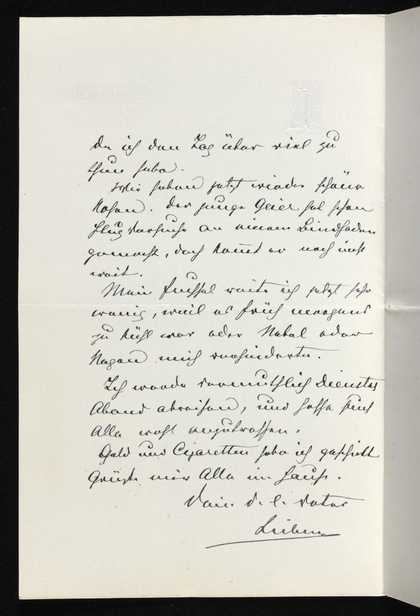 da ich den Tag über viel zu
thun habe.
Wir haben jetzt wieder schöne
Rosen. Der junge Geier hat schon
Flugversuche an einem Bindfaden
gemacht, doch kommt er noch nicht
weit.
Mein reite ich jetzt sehr
wenig, weil es früh morgens
zu kühl war oder Nebel oder
Regen mich verhinderte.
Ich werde vermuthlich Dienstag
Abend abreisen, und hoffe Euch
Alle wohl anzutreffen.
Geld und Cigaretten habe ich geschickt
Grüße mir Alle im Hause.
Dein d. l. Vater